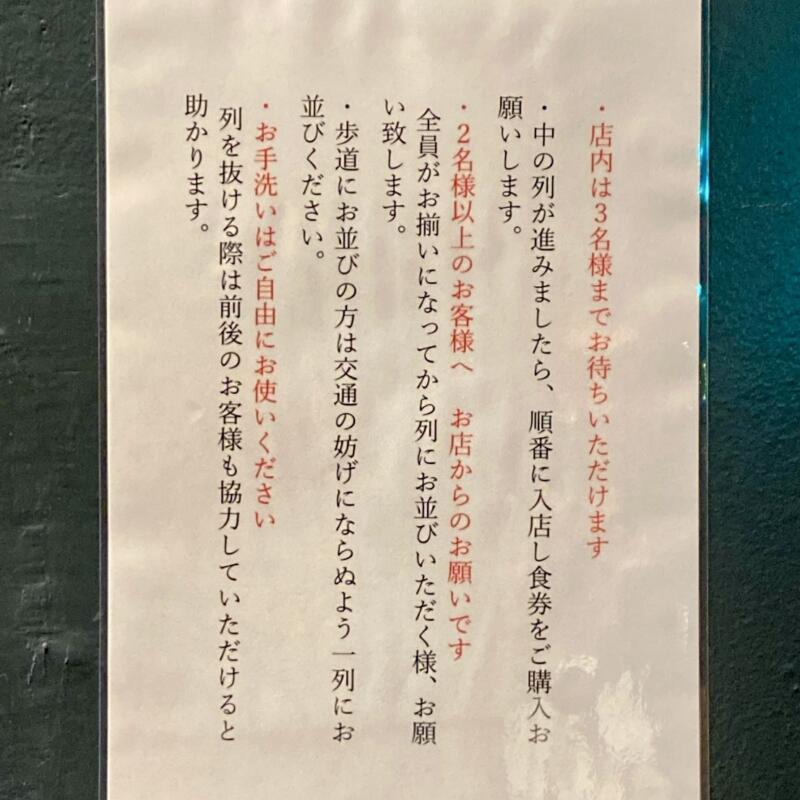 ・店内は3名様までお待ちいただけます
・中の列が進みましたら、順番に入店し食券をご購入お
願いします。
・2名様以上のお客様へ　お店からのお願いです
全員がお揃いになってから列にお並びいただく様、お願
い致します。
・歩道にお並びの方は交通の妨げにならぬよう一列にお
並びください。
・お手洗いはご自由にお使いください
列を抜ける際は前後のお客様も協力していただけると
助かります。